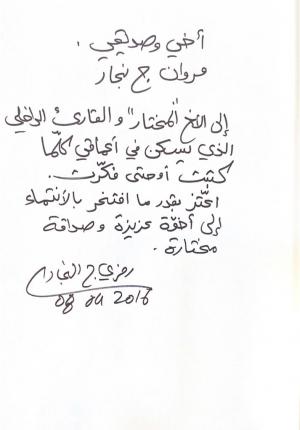 أخي وصديقي،
مروان ج نجار
إلى الأخ "المختار" والقارئ الداخلي
الذي يسكن في أعماقي كلّما
كتبت أو حتى فكّرت.
أعتز بقدر ما افتخر بالأنتماء
إلى أخوّة عزيزة وصداقة
مختارة.
رمزي ج النجار
08 04 2016